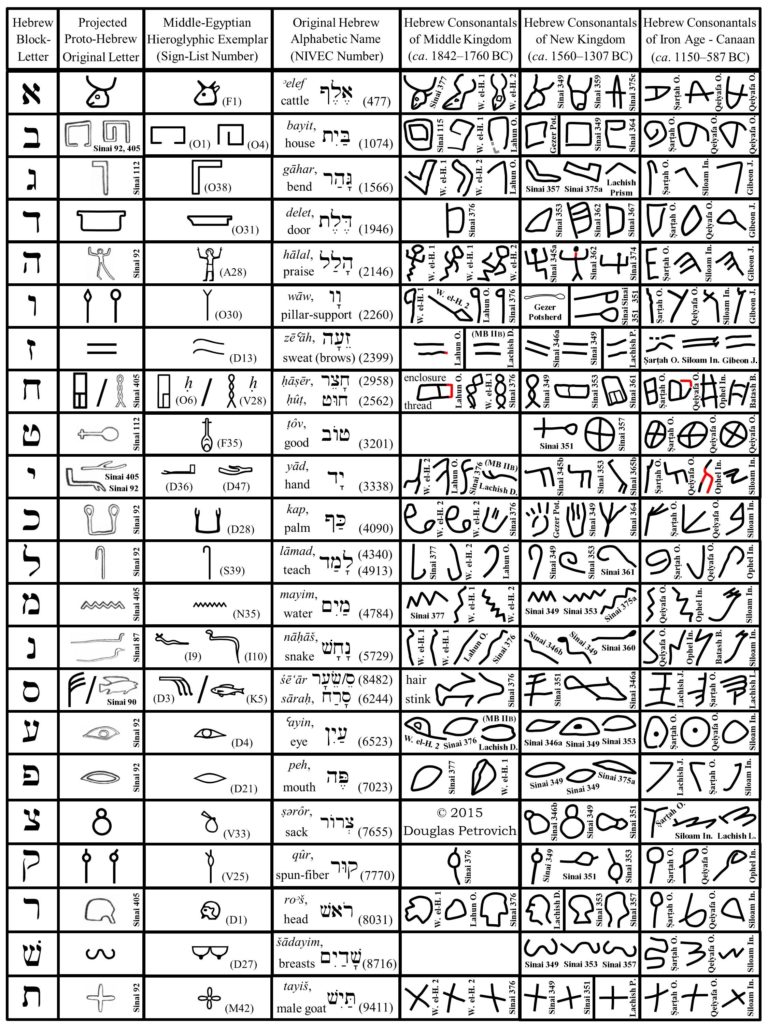 Hebrew Block-Letter
Projected Proto-Hebrew Original Letter
Middle-Egyptian Hieroglyphic Exemplar (Sign-List Number)
Original Hebrew Alphabetic Name (NIVEC Number)
Hebrew Consonantals of Middle Kingdom (ca. 1842–1760 BC)
Hebrew Consonantals of New Kingdom (ca. 1560–1307 BC)
Hebrew Consonantals of Iron Age - Canaan (ca. 1150–587 BC)
א (F1) ʾelef אֶלֶף cattle (477) Sinai 377 W. el-H. 1 W. el-H. 2 Sinai 349 Sinai 359 Sinai 375c Ṣarṭah O. Qeiyafa O. Qeiyafa O.
ב Sinai 92, 405 (O1) (O4) bayit, בַּיִת house (1074) Sinai 115 W. el-H. 1 Lahun O. Gezer Pot. Sinai 349 Sinai 364 Ṣarṭah O. Qeiyafa O. Qeiyafa O.
ג Sinai 112 (O38) gāhar, גָּהַר bend (1566) W. el-H. 1 W. el-H. 2 Lahun O. Sinai 357 Sinai 375a Lachish Prism Ṣarṭah O. Siloam In. Gibeon J.
ד (O31) delet, דֶּלֶת door (1946) Sinai 376 Sinai 353 Sinai 362 Sinai 367 Ṣarṭah O. Qeiyafa O. Gibeon J.
ה Sinai 92 (A28) hālal, הָלַל praise (2146) W. el-H. 1 W. el-H. 1 W. el-H. 2 Sinai 345a Sinai 362 Sinai 374 Ṣarṭah O. Siloam In. Gibeon J.
ו (O30) wāw, וָו pillar-support (2260) W. el-H. 1 W. el-H. 2 Lahun O. Sinai 376 Gezer Potsherd Sinai 351 Sinai 351 Ṣarṭah O. Qeiyafa O. Siloam In. Gibeon J.
ז (D13) zēʿāh, זֵעָה sweat (brows) (2399) Lahun O. (MB IIB) Lachish D. Sinai 346a Sinai 349 Lachish P. Ṣarṭah O. Siloam In. Gibeon J.
ח Sinai 405 / ḥ (O6) / ḥ (V28) ḥāṣēr, חָצֵר (2958) ḥûṭ, חוּט (2562) enclosure thread Lahun O. W. el-H. 1 Sinai 376 Sinai 349 Sinai 353 Sinai 361 Ṣarṭah O. Qeiyafa O. Ophel In. Batash B.
ט Sinai 112 (F35) ṭôv, טוֹב good (3201) Sinai 351 Sinai 357 Ṣarṭah O. Qeiyafa O. Qeiyafa O.
י Sinai 405 Sinai 92 (D36) (D47) yād, יָד hand (3338) W. el-H. 2 Lahun O. Sinai 376 (MB IIB) Lachish D. Sinai 345b Sinai 353 Sinai 365b Ṣarṭah O. Qeiyafa O. Ophel In. Siloam In.
כ Sinai 92 (D28) kap, כַּף palm (4090) W. el-H. 2 W. el-H. 2 Sinai 376 Gezer Pot. Sinai 349 Sinai 364 Ṣarṭah O. Qeiyafa O. Siloam In.
ל Sinai 92 (S39) lāmad, לָמַד teach (4340) (4913) Sinai 377 W. el-H. 2 Lahun O. Sinai 349 Sinai 353 Sinai 361 Ṣarṭah O. Qeiyafa O. Ophel In.
מ Sinai 405 (N35) mayim, מַיִם water (4784) Sinai 377 W. el-H. 1 W. el-H. 2 Sinai 349 Sinai 353 Sinai 375a Qeiyafa O. Ophel In. Siloam In.
נ Sinai 87 (I9) (I10) nāḥāš, נָחָשׁ snake (5729) W. el-H. 1 W. el-H. 1 Lahun O. Sinai 376 Sinai 346b Sinai 349 Sinai 360 Qeiyafa O. Ophel In. Batash B. Siloam In.
ס / Sinai 90 (D3) / (K5) śēʿār ס/שֵׂעָר (8482) sāraḥ, סָרַח (6244) hair stink Sinai 376 Sinai 351 Sinai 346a Lachish J. Ṣarṭah O. Lachish L.
ע Sinai 92 (D4) ʿayin, עַיִן eye (6523) W. el-H. 2 Sinai 376 (MB IIB) Lachish D. Sinai 346a Sinai 349 Sinai 353 Ṣarṭah O. Qeiyafa O. Siloam In.
פ Sinai 92 (D21) peh, פֶּה mouth (7023) Sinai 377 W. el-H. 1 Sinai 349 Sinai 349 Sinai 375a Lachish J. Ṣarṭah O. Siloam In.
צ (V33) ṣərôr, צְרוֹר sack (7655) © 2015 Douglas Petrovich Sinai 346b Sinai 349 Sinai 351 Ṣarṭah O. Siloam In. Lachish L.
ק (V25) qûr, קוּר spun-fiber (7770) Sinai 376 Sinai 349 Sinai 351 Sinai 353 Ṣarṭah O. Qeiyafa O. Ophel In.
ר Sinai 405 (D1) roʾš, רֹאשׁ head (8031) W. el-H. 2 Lahun O. Sinai 376 Lachish D. Sinai 353 Sinai 357 Ṣarṭah O. Qeiyafa O. Siloam In.
שׁ (D27) šādayim, שָׁדַיִם breasts (8716) Sinai 349 Sinai 353 Sinai 357 Ṣarṭah O. Qeiyafa O. Siloam In.
ת Sinai 92 (M42) tayiš, תַּיִשׁ male goat (9411) W. el-H. 1 W. el-H. 2 Sinai 376 Sinai 349 Sinai 351 Lachish P. Ṣarṭah O. Qeiyafa O. Siloam In.